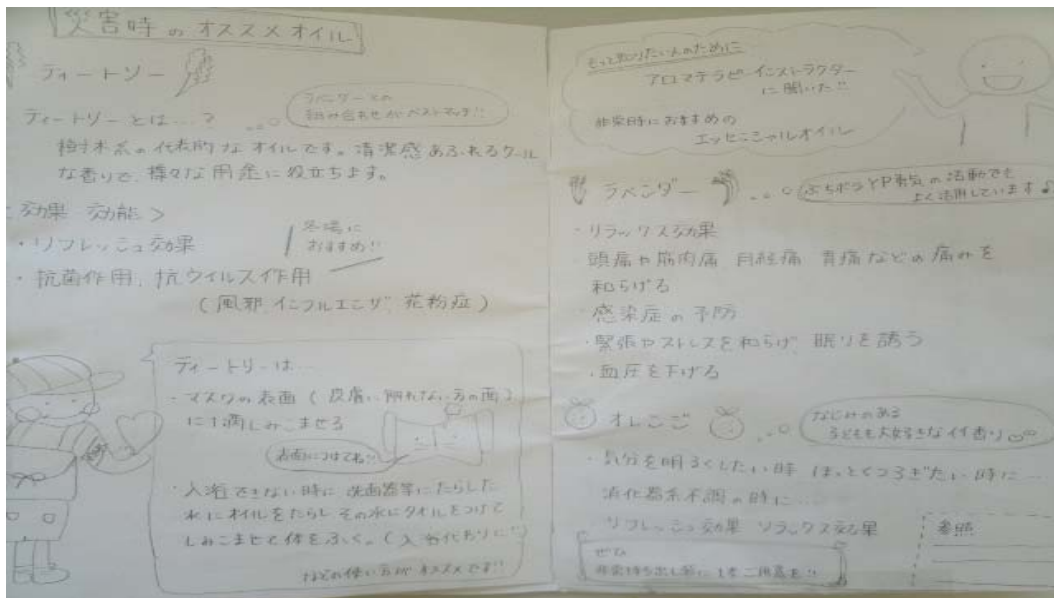 災害時のオススメオイル
ティートリー
ティートリーとは…?
ラベンダーとの
組み合わせがベストマッチ!!
樹木系の代表的なオイルです。清潔感あふれるクール
な香りで、様々な用途に役立ちます。
効果 効能 >
・リフレッシュ効果
冬場に
おすすめ!!
・抗菌作用、抗ウイルス作用
(風邪、インフルエンザ、花粉症)
ティートリーは…
・マスクの表面(皮膚に触れない方の面)
に1滴しみこませる
表面につけてね!!
・入浴できない時に 洗面器等にたらした
水にオイルをたらし その水にタオルをつけて
しみこませて体をふく。(入浴代わりに!!)
などの使い方がオススメです!!
もっと知りたい人のために
アロマテラピーインストラクター
に聞いた!!
非常時におすすめの
エッセンシャルオイル
ラベンダー
ぷちボラやP勇気の活動でも
よく活用しています♪
・リラックス効果
・頭痛や筋肉痛 月経痛 胃痛などの痛みを
和らげる
・感染症の予防
・緊張やストレスを和らげ 眠りを誘う
・血圧を下げる
オレンジ
なじみのある
子どもも大好きなイイ香り
・気分を明るくしたい時 ほっとくつろぎたい時に…
消化器系不調の時に…
リフレッシュ効果 リラックス効果
ぜひ
非常持ち出し袋に1本ご用意を!!
参照